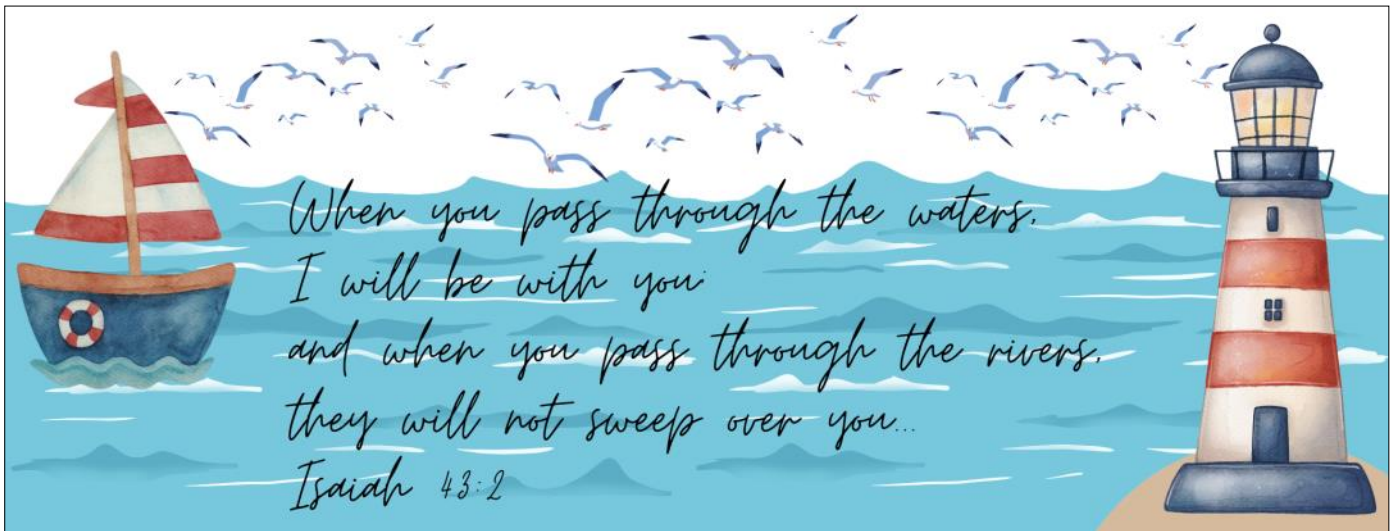 When you pass through the waters,
I will be with you;
and when you pass through the rivers,
they will not sweep over you...
Isaiah 43:2